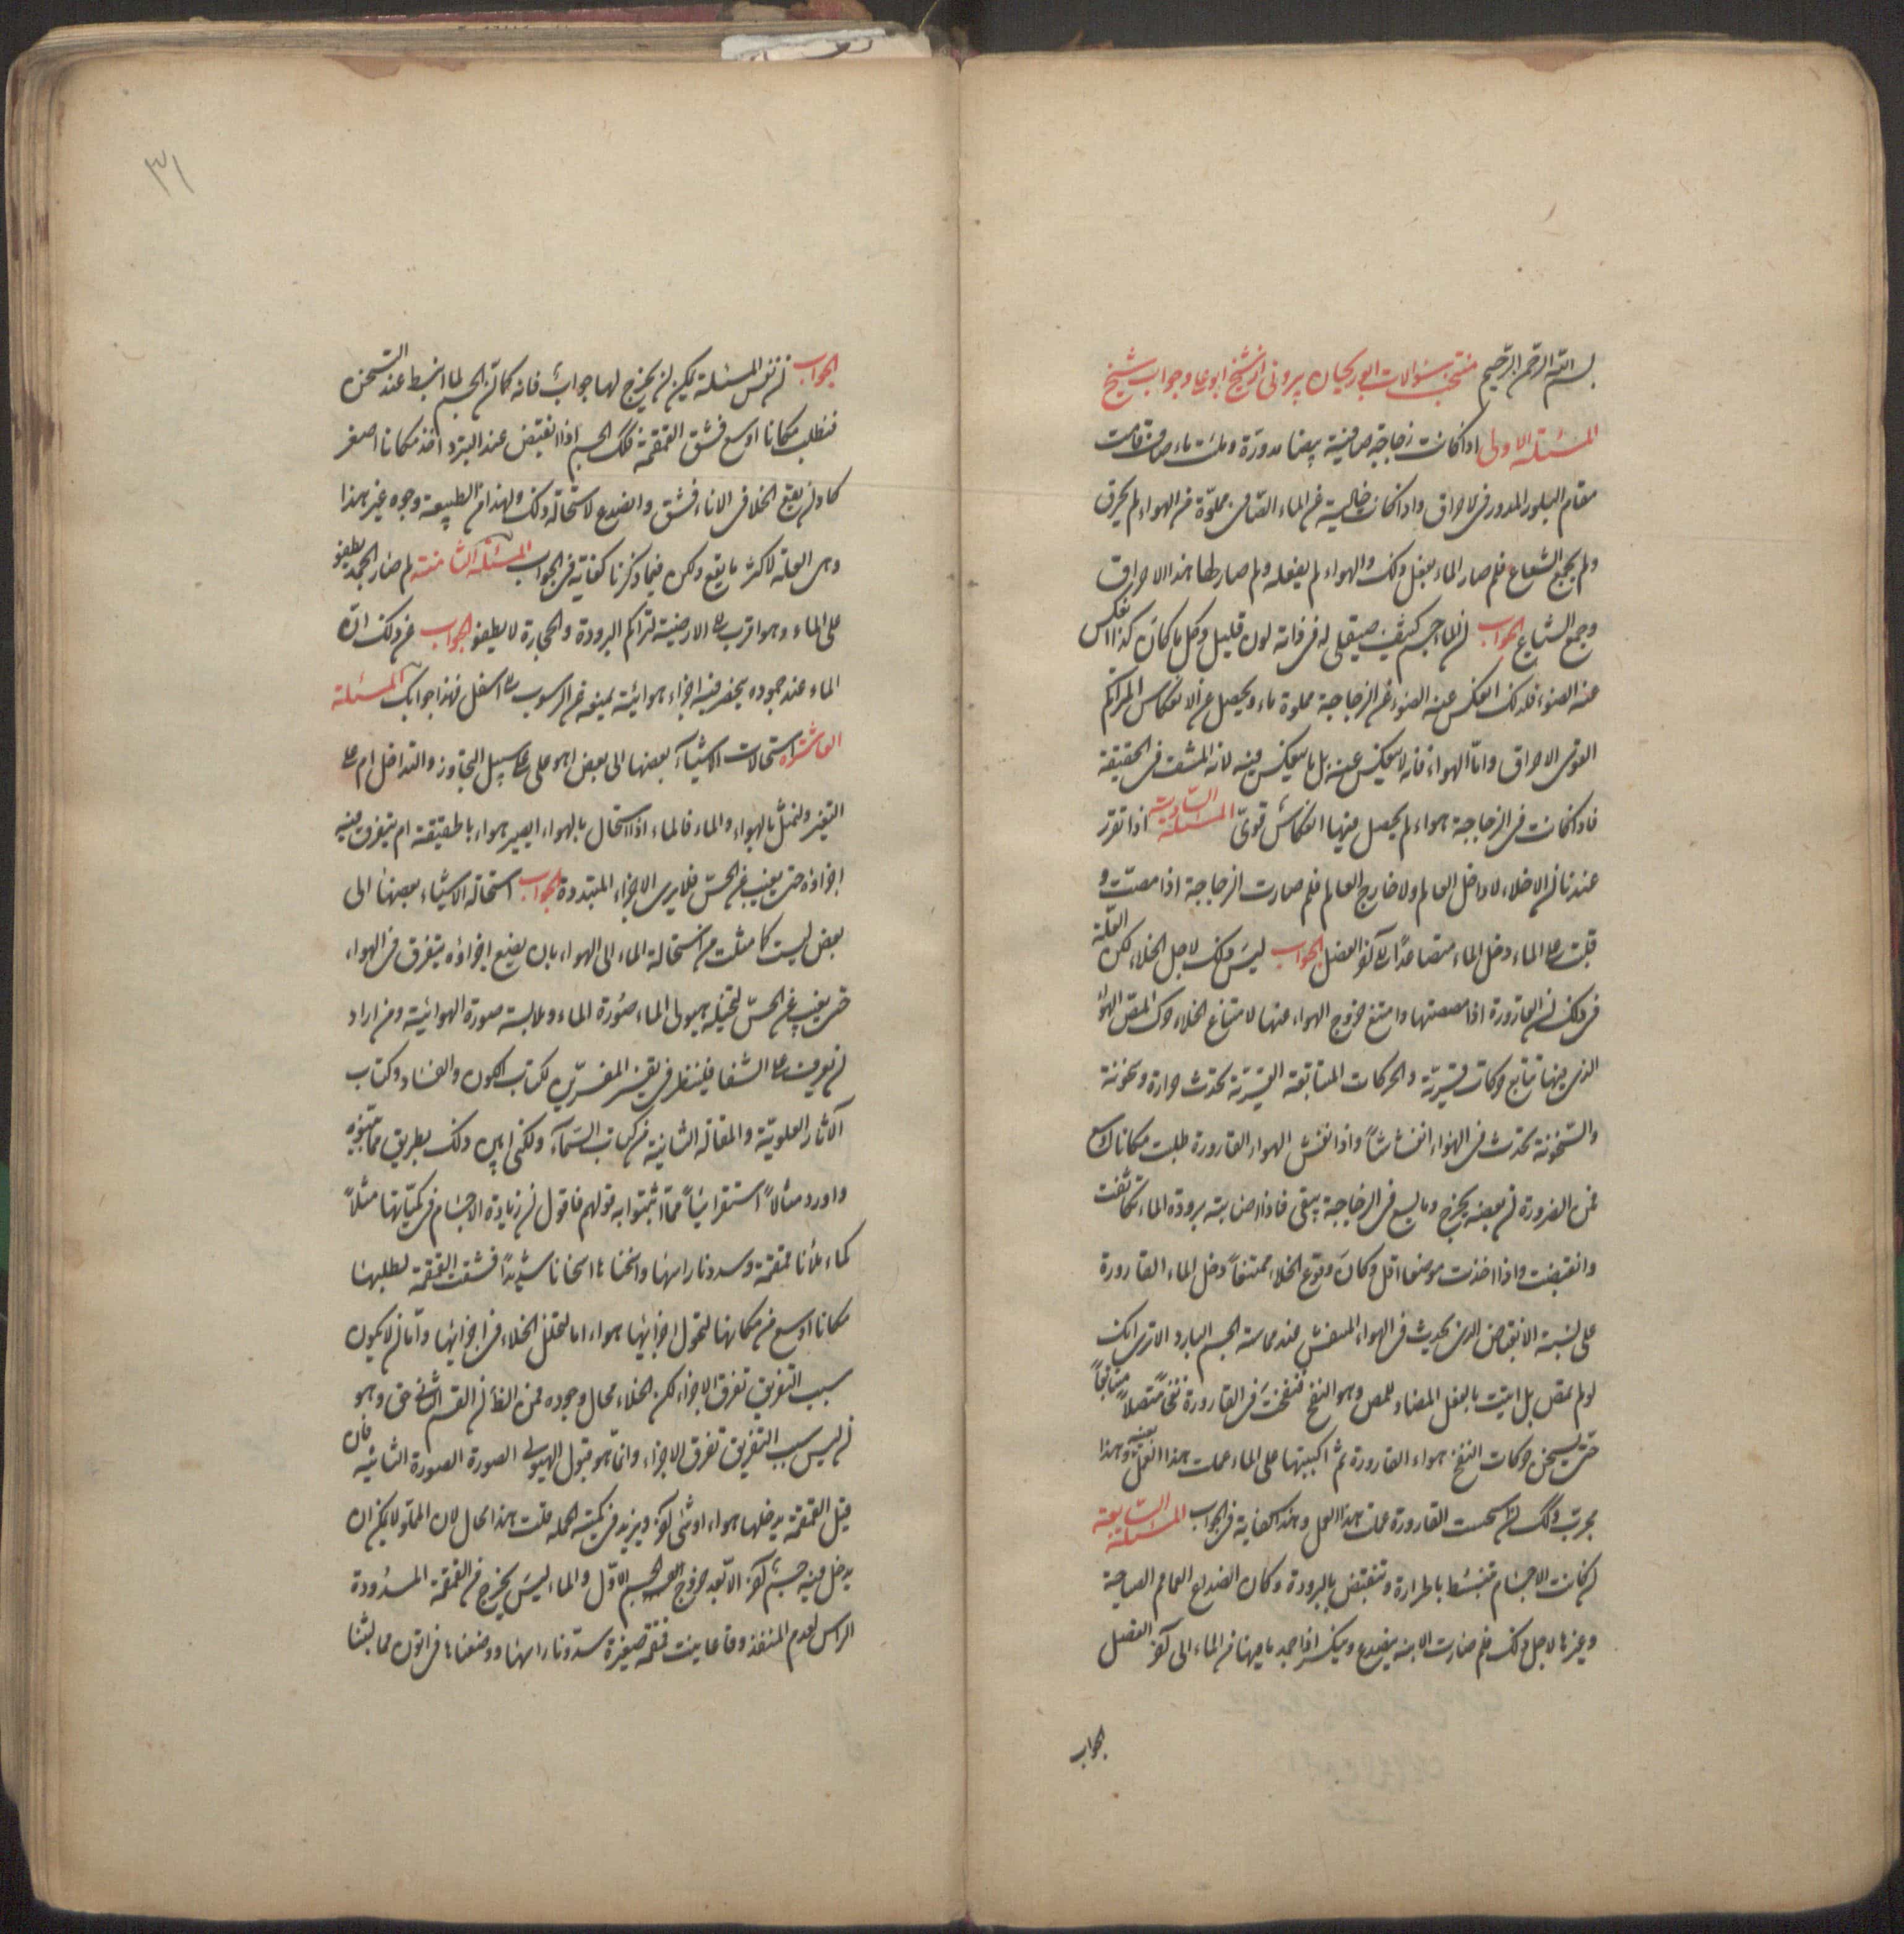 بسم الله الرحمن الرحيم منتخب سئوالات ابوريحان بيرونى از شيخ ابو على وجواب شيخ
المسئلة الاولى اذا كانت زجاجة صافية بيضا مدورة وملئت ماء صاف قامت
مقام البلور المدور فى الاحراق واذا كانت خالية من الماء الصافى مملوّة من الهواء لم يحرق
ولم يجمع الشعاع فلم صار الماء يفعل ذلك والهواء لم يفعله ولم صار لها هذا الاحراق
وجمع الشعاع الجواب ان الماء جسم كثيف صيقلى له فى ذاته لون قليل وكل ما كان كذا انعكس
عنه الضوء فلذلك انعكس عنه الضوء من الزجاجة مملوة ماء ويحصل عن الانعكاس المتراكم
القوى الاحراق واما الهواء فانه لا ينعكس عنه بل ما ينعكس فيه لانه المشف فى الحقيقة
فاذا كانت فى الزجاجة هواء لم يحصل منها انعكاس قوىّ المسئلة السادسة اذا تقرر
عندنا ان لا خلاء لا داخل العالم ولا خارج العالم فلم صارت الزجاجة اذا مصت و
قلبت على الماء دخل الماء متصاعدًا الى آخر الفصل الجواب ليس ذلك لاجل الخلاء لكن العلة
فى ذلك ان القارورة اذا مصصتها وامتنع خروج الهواء عنها لامتناع الخلاء حرك المص الهواء
الذى فيها تتابع حركات قسرية والحركات المتابعة القسرية تحدث حرارة وسخونة
والسخونة تحدث فى الهواء انفشاشاً واذا انفش الهواء القارورة طلبت مكانا اوسع
فمن الضرورة ان بعضه يخرج وما يسع فى الزجاجة يبقى فاذا اصابته برودة الماء تكاثفت
وانقبضت واذا اخذت موضعا اقل وكان وقوع الخلاء ممتنعاً دخل الماء القارورة
على نسبة الانقباض الذى يحدث فى الهواء المنفش عند مماسة الجسم البارد الا ترى انك
لو لم تمص بل اتيت بالفعل المضاد للمص وهو النفخ فنفخت فى القارورة نفخاً متصلاً متتابعاً
حتى تسخن حركات النفخ هواء القارورة ثم اكببتها على الماء عملت هذا الفعل بعينه وهذا
مجرب وكذلك ان اسخنت القارورة عملت هذا العمل وهذا كفاية فى الجواب المسئلة السابعة
ان كانت الاجسام تنبسط بالحرارة وتنقبض بالبرودة وكان انصداع القماقم الصياحة
وغيرها لاجل ذلك فلم صارت الآنية ينصدع وينكسر اذا جمد ما فيها من الماء الى آخر الفصل
الجواب
٣١
الجواب ان نفس المسئلة يمكن ان يخرج لها جواب فانه كما ان الجسم لما انبسط عند التسخن
فطلب مكانا اوسع فشق القمقمة كذلك الجسم اذا انقبض عند التبرد اخذ مكانا اصغر
كاد ان يقع الخلا فى الاناء فشق وانصدع لاستحالة ذلك ولهذا من الطبيعة وجوه غير هذا
وهى العلة لاكثر ما يقع ولكن فيما ذكرنا كفاية فى الجواب المسئلة الثامنة لم صار الجمد يطفو
على الماء وهو اقرب الى الارضية لتراكم البرودة والحجارة لا يطفو الجواب عن ذلك ان
الماء عند جموده يحصر فيه اجزاء هوائية يمنعه عن الرسوب الى اسفل فهذا جوابك المسئلة
العاشرة استحالات الاشيآء بعضها الى بعض اهو على سبيل التجاور والتداخل ام على
التغير ولنمثل بالهواء والماء فالماء اذا استحال بالهواء ايصير هواء بالحقيقة ام يتفرق فيه
اجزاؤه حتى يغيب عن الحسّ فلا يرى الاجزاء المتبددة الجواب استحالة الاشياء بعضها الى
بعض ليست كما مثلت من استحالة الماء الى الهواء بان يضع اجزاؤه يتفرق فى الهواء
حتى يغيب عن الحسّ لتخليه هيولى الماء صورة الماء وملابسة صورة الهوائية ومن اراد
ان يعرف على الشفا فلينظر فى تفسير المفسرين لكتاب الكون والفساد وكتاب
الآثار العلوية والمقالة الثالثة من كتاب السمآء ولكنى ابين ذلك بطريق مما تنحوه
واورد مثالاً استقرائياً مما اثبتوا به قولهم فاقول ان زيادة الاجسام فى كمياتها مثلاً
كماء ملأنا قمقمة وسددنا راسها واسخناها اسخانا شديداً فشقت القمقمة لطلبها
مكانا اوسع من مكانها لتحول اجزائها هواء اما لتخلل الخلاء فى اجزائها واما ان لا يكون
سبب التفريق تفرق الاجزاء لكن الخلاء محال وجوده فمن الظا ان القسم الثانى حق وهو
ان ليس سبب التفريق تفرق الاجزاء وانما هو قبول الهيولى الصورة الصورة الثانية فان
قيل القمقمة يدخلها هواء او شئ آخر ويزيد فى كميته الجملة قلت هذا محال لان المملو لا يمكن ان
يدخل فيه جسم آخر الا بعد خروج الجسم الاول والماء ليس يخرج من القمقمة المسدودة
الراس لعدم المنفذ وقد عاينت قمقمة صغيرة سددنا راسها ووضعناها فى اتون فما لبثنا